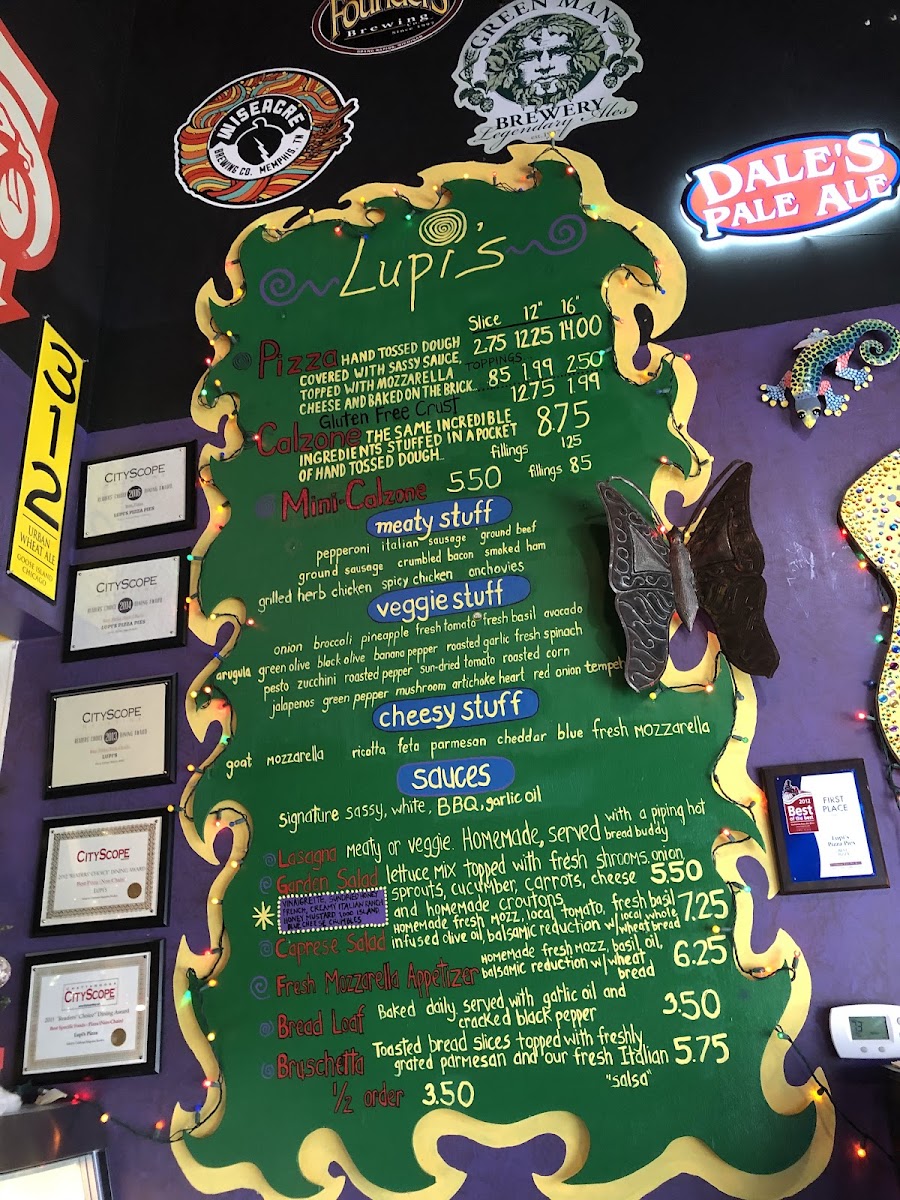 Founders
Brewing Co.
Since 1997
GREEN MAN
BREWERY
Legendary Ales
WISEACRE
BREWING CO. MEMPHIS, TN
DALE'S
PALE ALE
312
URBAN
WHEAT ALE
GOOSE ISLAND
CHICAGO
Lupi's
Slice 12" 16"
Pizza HAND TOSSED DOUGH 2.75 1225 14.00
COVERED WITH SASSY SAUCE,
TOPPED WITH MOZZARELLA TOPPINGS 85 1.99 2.50
CHEESE AND BAKED ON THE BRICK...
Gluten Free Crust 1275 1.99
Calzone THE SAME INCREDIBLE 8.75
INGREDIENTS STUFFED IN A POCKET
OF HAND TOSSED DOUGH.. fillings 125
Mini-Calzone 550 fillings 85
meaty stuff
pepperoni italian sausage ground beef
ground sausage crumbled bacon smoked ham
grilled herb chicken spicy chicken anchovies
veggie stuff
onion broccoli pineapple fresh tomato fresh basil avocado
arugula green olive black olive banana pepper roasted garlic fresh spinach
pesto zucchini roasted pepper sun-dried tomato roasted corn
jalapenos green pepper mushroom artichoke heart red onion tempeh
cheesy stuff
goat mozzarella ricotta feta parmesan cheddar blue fresh mozzarella
sauces
signature sassy, white, BBQ, garlic oil
Lasagna meaty or veggie. Homemade, served with a piping hot
bread buddy
Garden Salad lettuce mix topped with fresh shrooms, onion
sprouts, cucumber, carrots, cheese 5.50
and homemade croutons
VINAIGRETTE, SUNDRIED HONEY
FRENCH, CREAMY ITALIAN, RANCH
HONEY MUSTARD, 1000 ISLAND
BLUE CHEESE CRUMBLES
Caprese Salad Homemade fresh mozz, local tomato, fresh basil 7.25
infused olive oil, balsamic reduction w/ local whole
wheat bread
Fresh Mozzarella Appetizer Homemade fresh mozz, basil oil, 6.25
balsamic reduction w/ wheat
bread
Bread Loaf Baked daily served with garlic oil and 3.50
cracked black pepper
Bruschetta Toasted bread slices topped with freshly
grated parmesan and our fresh Italian 5.75
"salsa"
1/2 order 3.50
CITYSCOPE
LUPI'S PIZZA PIES
CITYSCOPE
2014
LUPI'S PIZZA PIES
CITYSCOPE
2013
LUPI'S
CITYSCOPE
LUPI'S
CITYSCOPE
"Readers' Choice" Dining Award
Lupi's Pizza
2012
Best
of the best
FIRST
PLACE
Lupi's
Pizza Pies